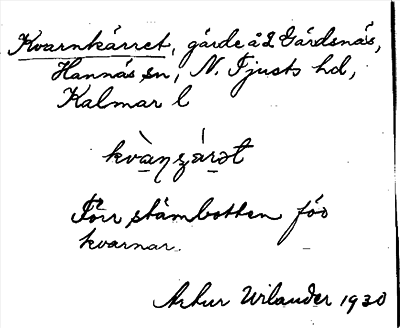 Kvarnkärret, gärde å 2 Gärdsnäs,
Hannäs sn, N. Tjusts hd,
Kalmar l
Förr stambotten för
kvarnar.
Artur Wilander 1930